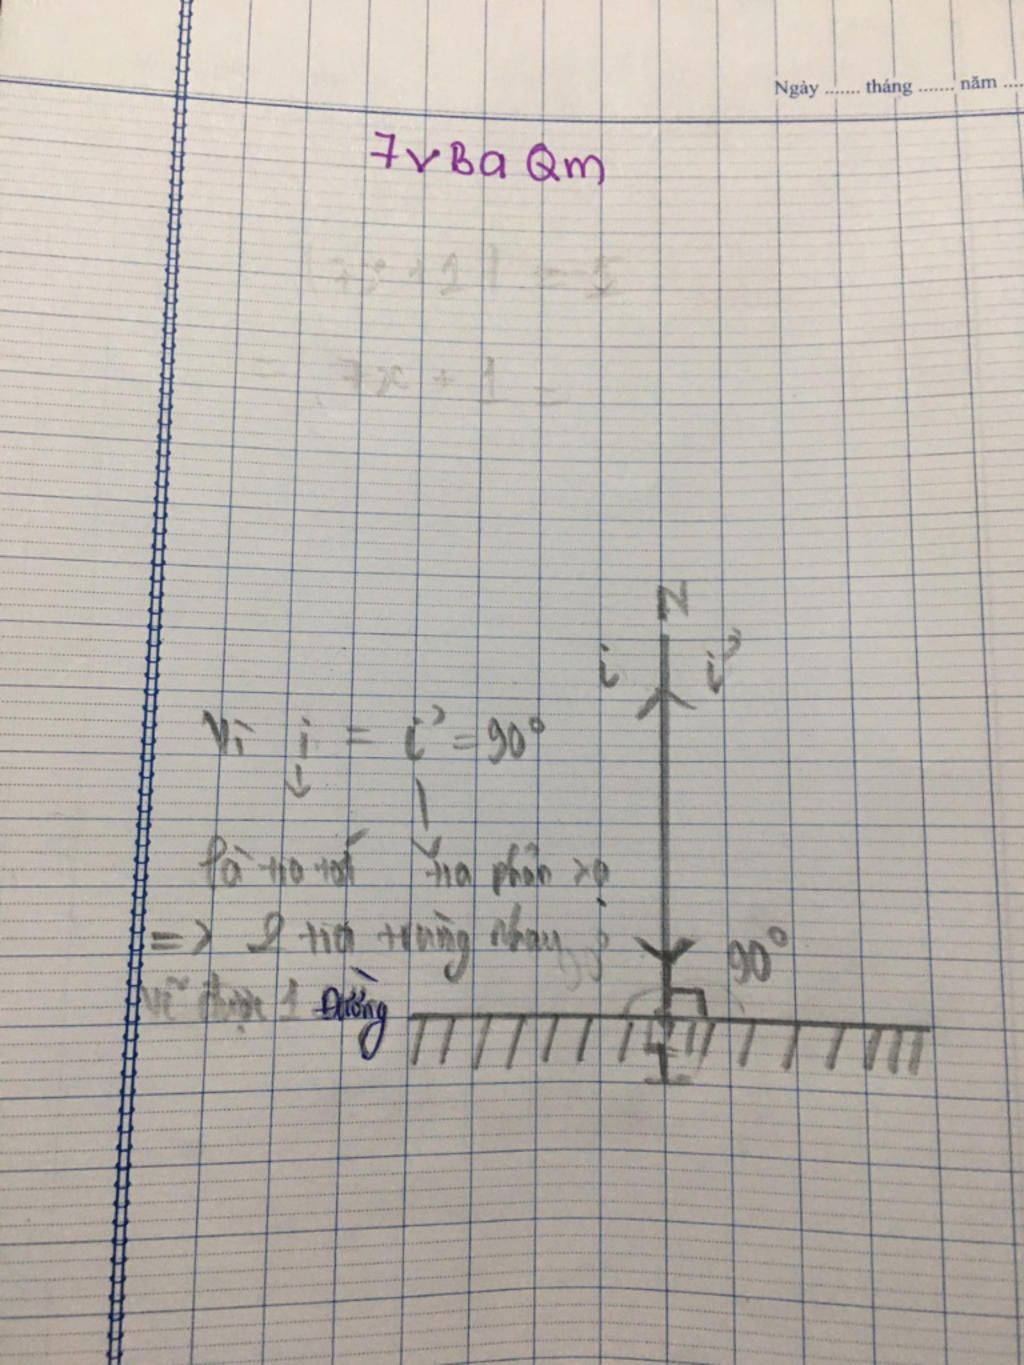 Ngày ....... tháng ....... năm ....
7v Ba Qm
= 5
= 7x + 1 =
N
i i'
Vì i = i' = 90°
là tia tới tia phản xạ
=> 2 tia trùng nhau
90°
vẽ được 1 Đường
I